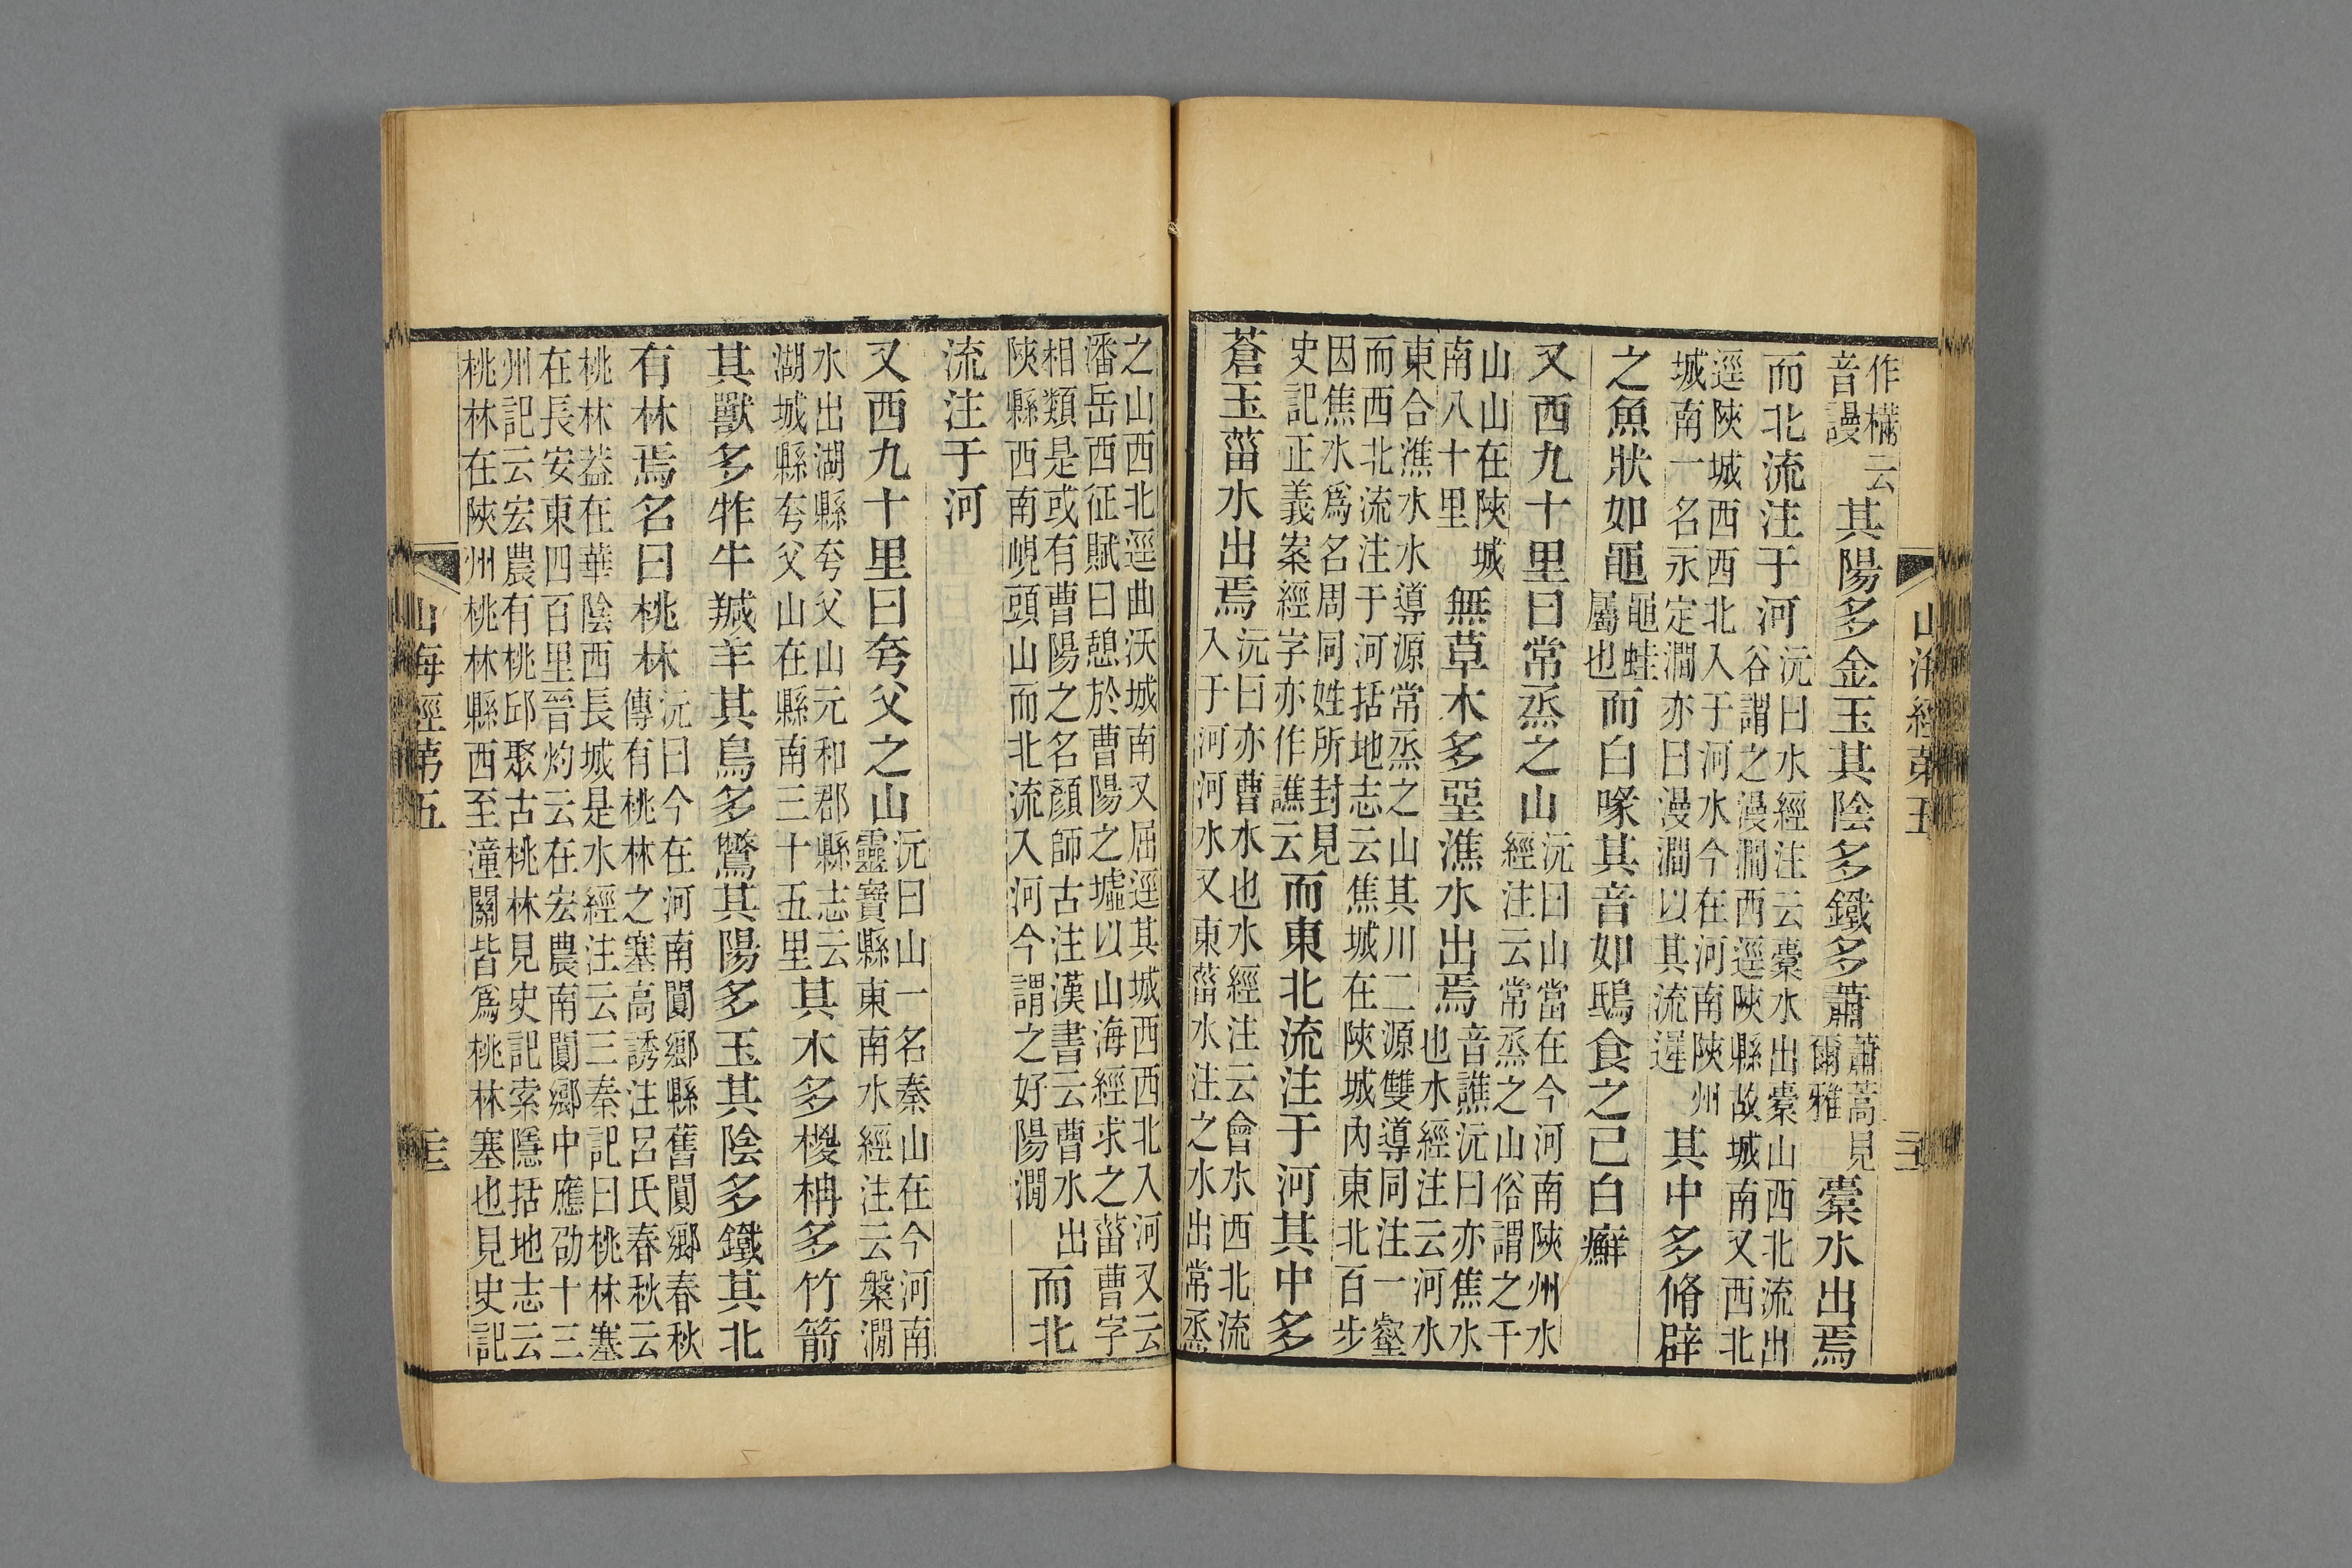 山海經第五
作構云音謾其陽多金玉其陰多鐵多蕭蕭蒿見爾雅橐水出焉
而北流注于河沅曰水經注云橐水出橐山西北流出谷謂之漫澗西逕陝縣故城南又西北
逕陝城西西北入于河水今在河南陝州城南一名永定澗亦曰漫澗以其流遲其中多脩辟
之魚狀如黽黽蛙屬也而白喙其音如鴟食之已白癬
又西九十里曰常烝之山沅曰山當在今河南陝州水經注云常烝之山俗謂之干
山山在陝城南八十里無草木多堊潐水出焉音譙沅曰亦焦水也水經注云河水
東合潐水水導源常烝之山其川二源雙導同注一壑而西北流注于河括地志云焦城在陝城內東北百步
因焦水爲名周同姓所封見史記正義案經字亦作譙云而東北流注于河其中多
蒼玉菑水出焉沅曰亦曹水也水經注云會水西北流入于河河水又東菑水注之水出常烝
之山西北逕曲沃城南又屈逕其城西西北入河又云潘岳西征賦曰憩於曹陽之墟以山海經求之菑曹字
相類是或有曹陽之名顏師古注漢書云曹水出陝縣西南峴頭山而北流入河今謂之好陽澗而北
流注于河
又西九十里曰夸父之山沅曰山一名秦山在今河南靈寶縣東南水經注云槃澗
水出湖縣夸父山元和郡縣志云湖城縣夸父山在縣南三十五里其木多椶枏多竹箭
其獸多㸲牛羬羊其鳥多鷩其陽多玉其陰多鐵其北
有林焉名曰桃林沅曰今在河南閿鄉縣舊閿鄉春秋傳有桃林之塞高誘注呂氏春秋云
桃林葢在華陰西長城是水經注云三秦記曰桃林塞在長安東四百里晉灼云在宏農南閿鄉中應劭十三
州記云宏農有桃邱聚古桃林見史記索隱括地志云桃林在陝州桃林縣西至潼關皆爲桃林塞也見史記
山海經第五